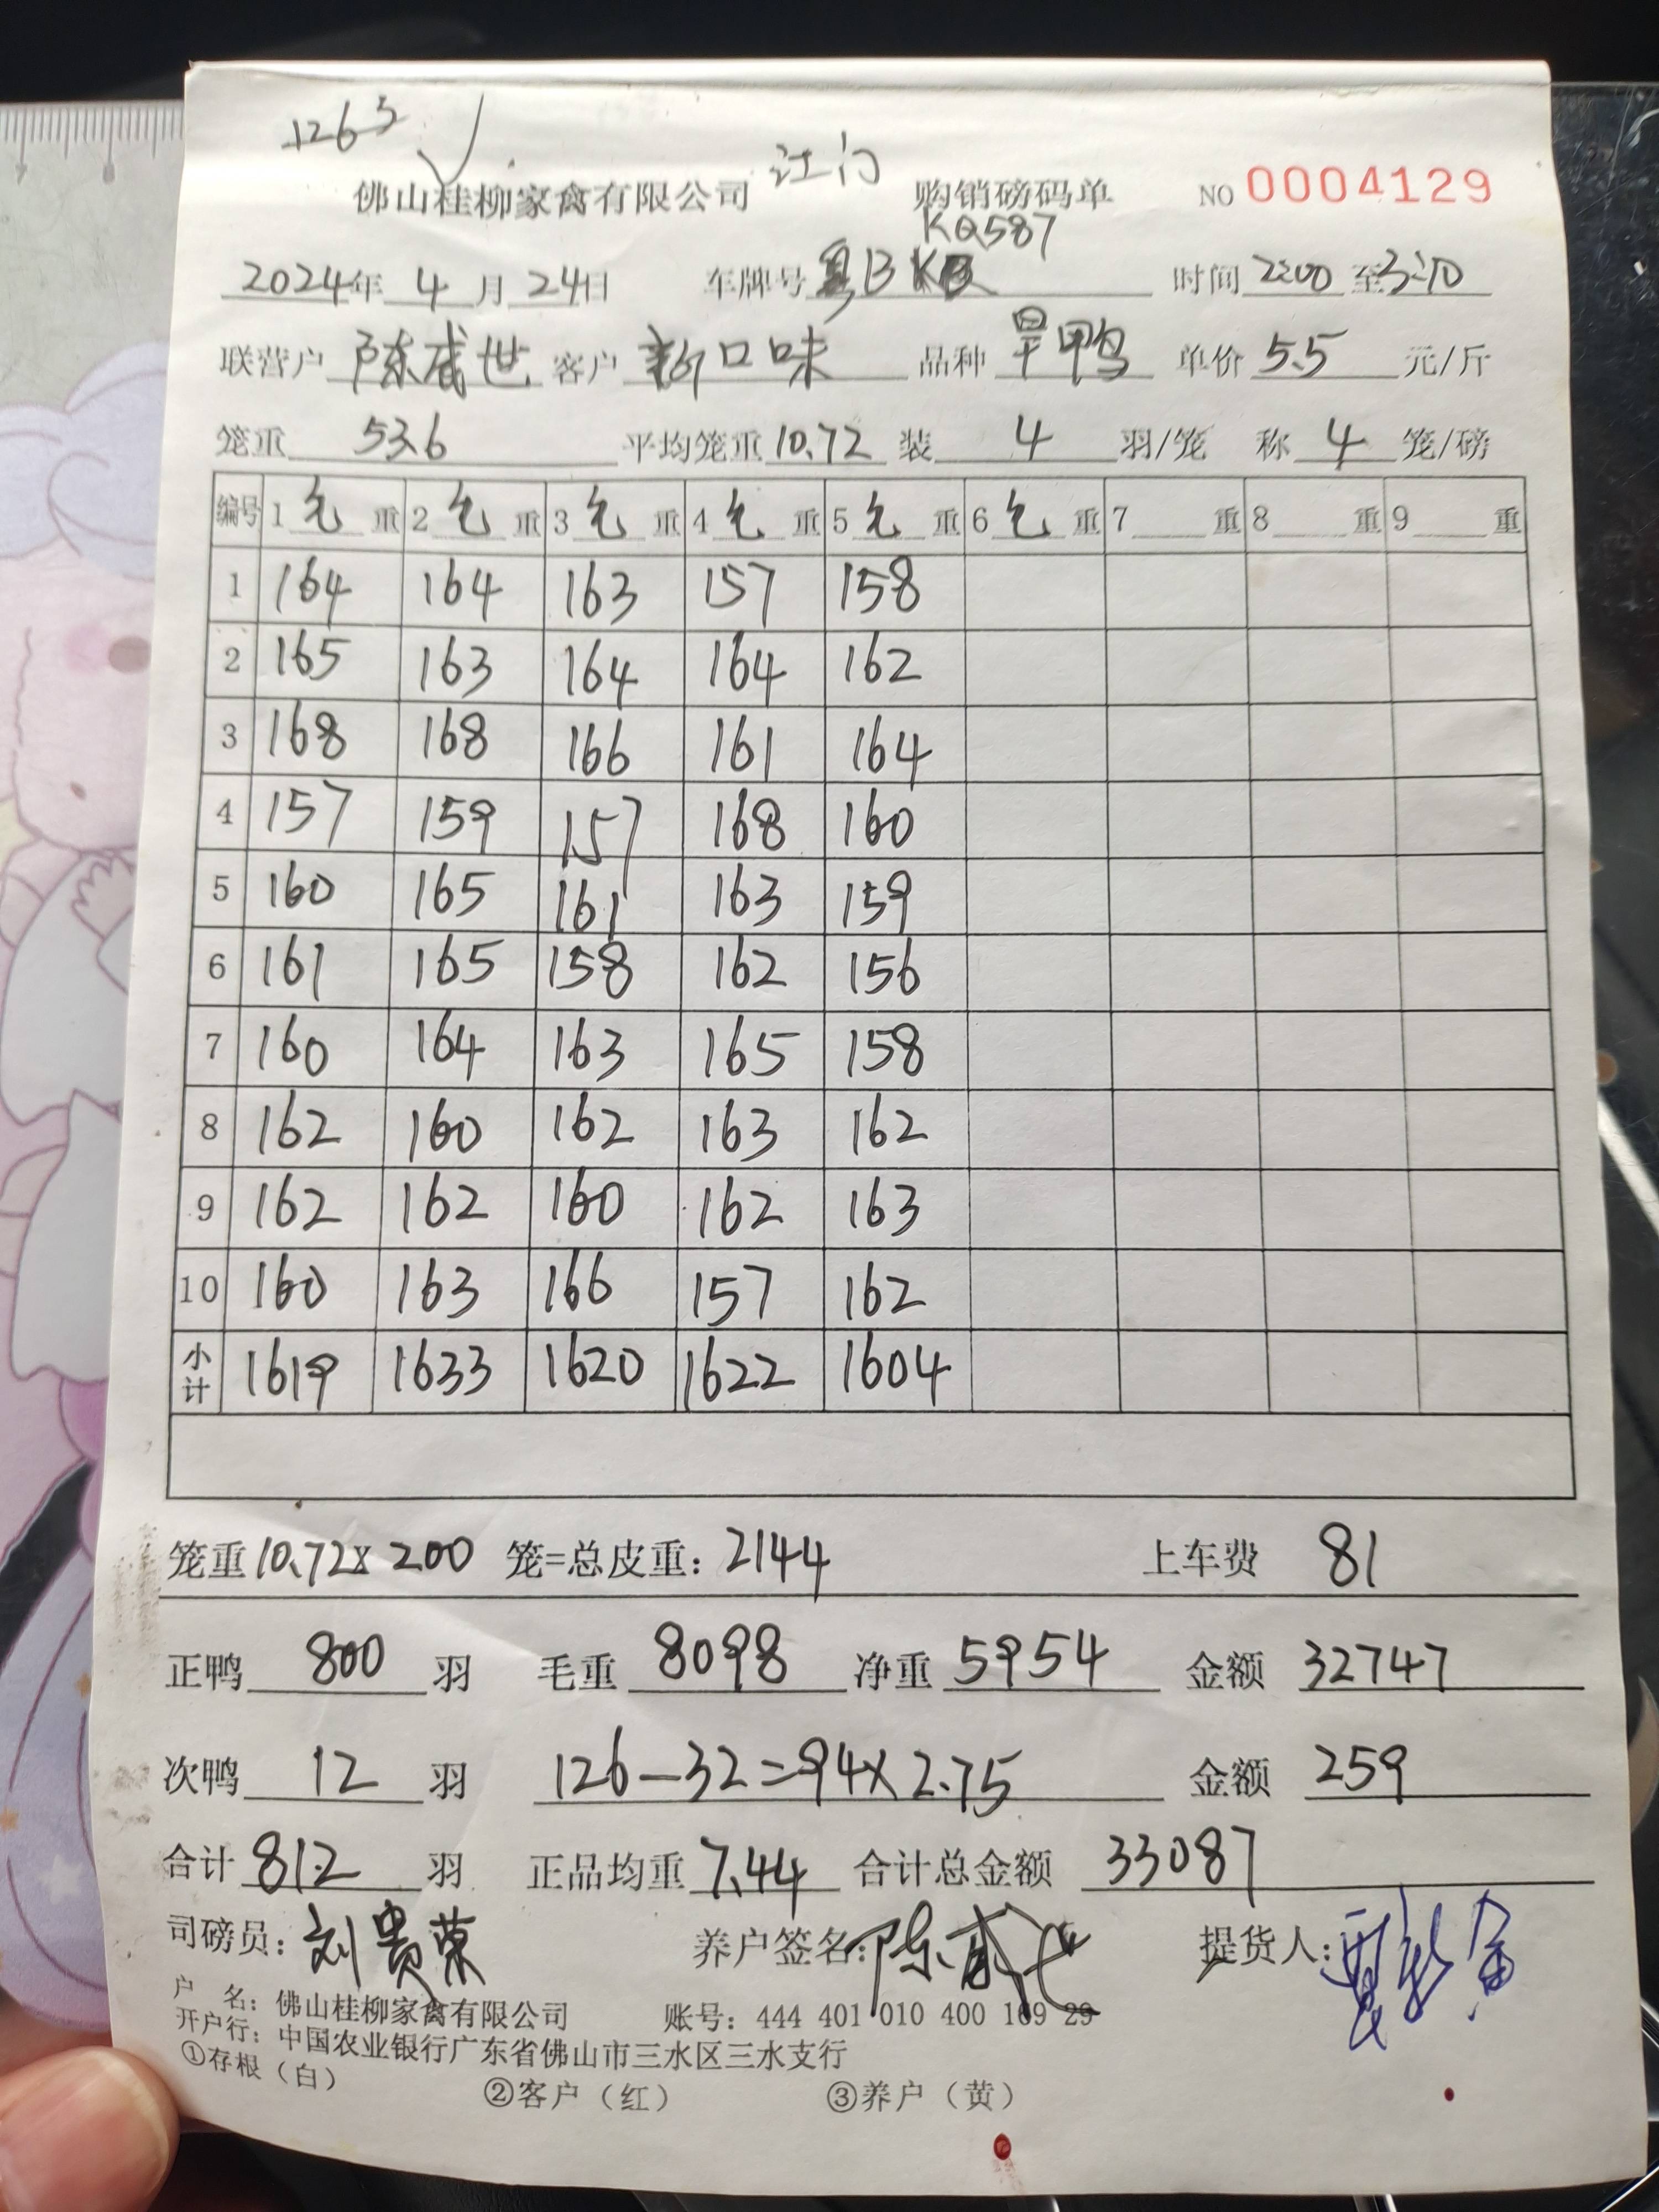 1263
江门
佛山桂柳家禽有限公司 购销磅码单 NO 0004129
KQ587
2024年 4 月 24日 车牌号 粤B 时间 2:00 至 3:10
联营户 陈威世 客户 新口味 品种 旱鸭 单价 5.5 元/斤
笼重 53.6 平均笼重 10.72 装 4 羽/笼 称 4 笼/磅
编号 1 毛 重 2 毛 重 3 毛 重 4 毛 重 5 毛 重 6 毛 重 7 重 8 重 9 重
1 164 164 163 157 158
2 165 163 164 164 162
3 168 168 166 161 164
4 157 159 157 168 160
5 160 165 161 163 159
6 161 165 158 162 156
7 160 164 163 165 158
8 162 160 162 163 162
9 162 162 160 162 163
10 160 163 166 157 162
小计 1619 1633 1620 1622 1604
笼重 10.72 x 200 笼=总皮重: 2144 上车费 81
正鸭 800 羽 毛重 8098 净重 5954 金额 32747
次鸭 12 羽 126-32=94x2.75 金额 259
合计 812 羽 正品均重 7.44 合计总金额 33087
司磅员: 刘贵荣 养户签名: 陈威世 提货人:
户 名: 佛山桂柳家禽有限公司 账号: 444 401 010 400 169 29
开户行: 中国农业银行广东省佛山市三水区三水支行
①存根(白) ②客户(红) ③养户(黄)